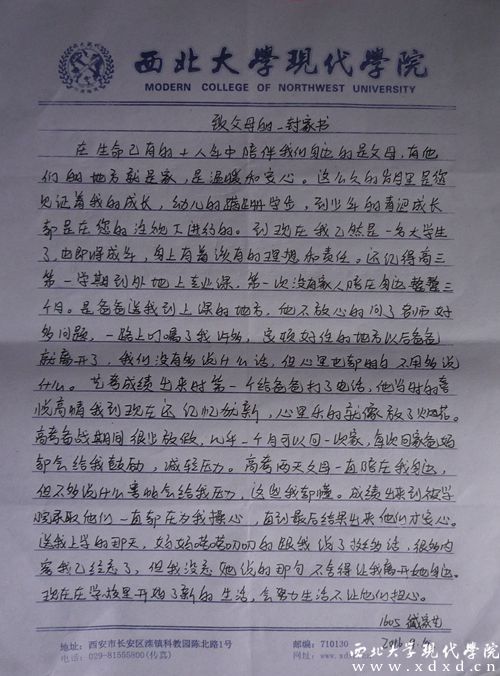 西北大學現代學院
MODERN COLLEGE OF NORTHWEST UNIVERSITY
致父母的一封家书
在生命已有的十八年中陪伴我们身边的是父母,有他
们的地方就是家,是温暖和安心。这么久的岁月里是您
见证着我的成长,幼儿的蹒跚学步,到少年的青涩成长
都是在您的注视下进行的。到现在我已然是一名大学生
了,也即将成年,身上有着该有的理想和责任。还记得高三
第一学期到外地上专业课,第一次没有家人陪在身边整整三
个月。是爸爸送我到上课的地方,他不放心的问了老师好
多问题,一路上叮嘱了我许多,安顿好住的地方以后爸爸
就离开了,我们没有多说什么话,但心里也都明白不用多说
什么。艺考成绩出来时第一个给爸爸打了电话,他当时的喜
悦高情我到现在还记忆犹新,心里乐的就像放了烟花。
高考备战期间很少放假,几乎一个月可以回一次家,每次回家爸妈
都会给我鼓励,减轻压力。高考两天父母一直陪在我身边,
但不多说什么害怕会给我压力,这些我都懂。成绩出来到被学
院录取他们一直都在为我操心,直到最后结果出来他们才安心。
送我上学的那天,妈妈唠唠叨叨的跟我说了挺多话,很多内
容我已经忘了,但我没忘她说的那句不舍得让我离开她身边。
现在在学校里开始了新的生活,会努力生活不让他们担心。
1605 臧
2016.9.
地址:西安市长安区滦镇科教园陈北路1号 邮编:710130
电话:029-81555800(传真) 网址:www.xdxd.cn
西北大学现代学院
www.xdxd.cn